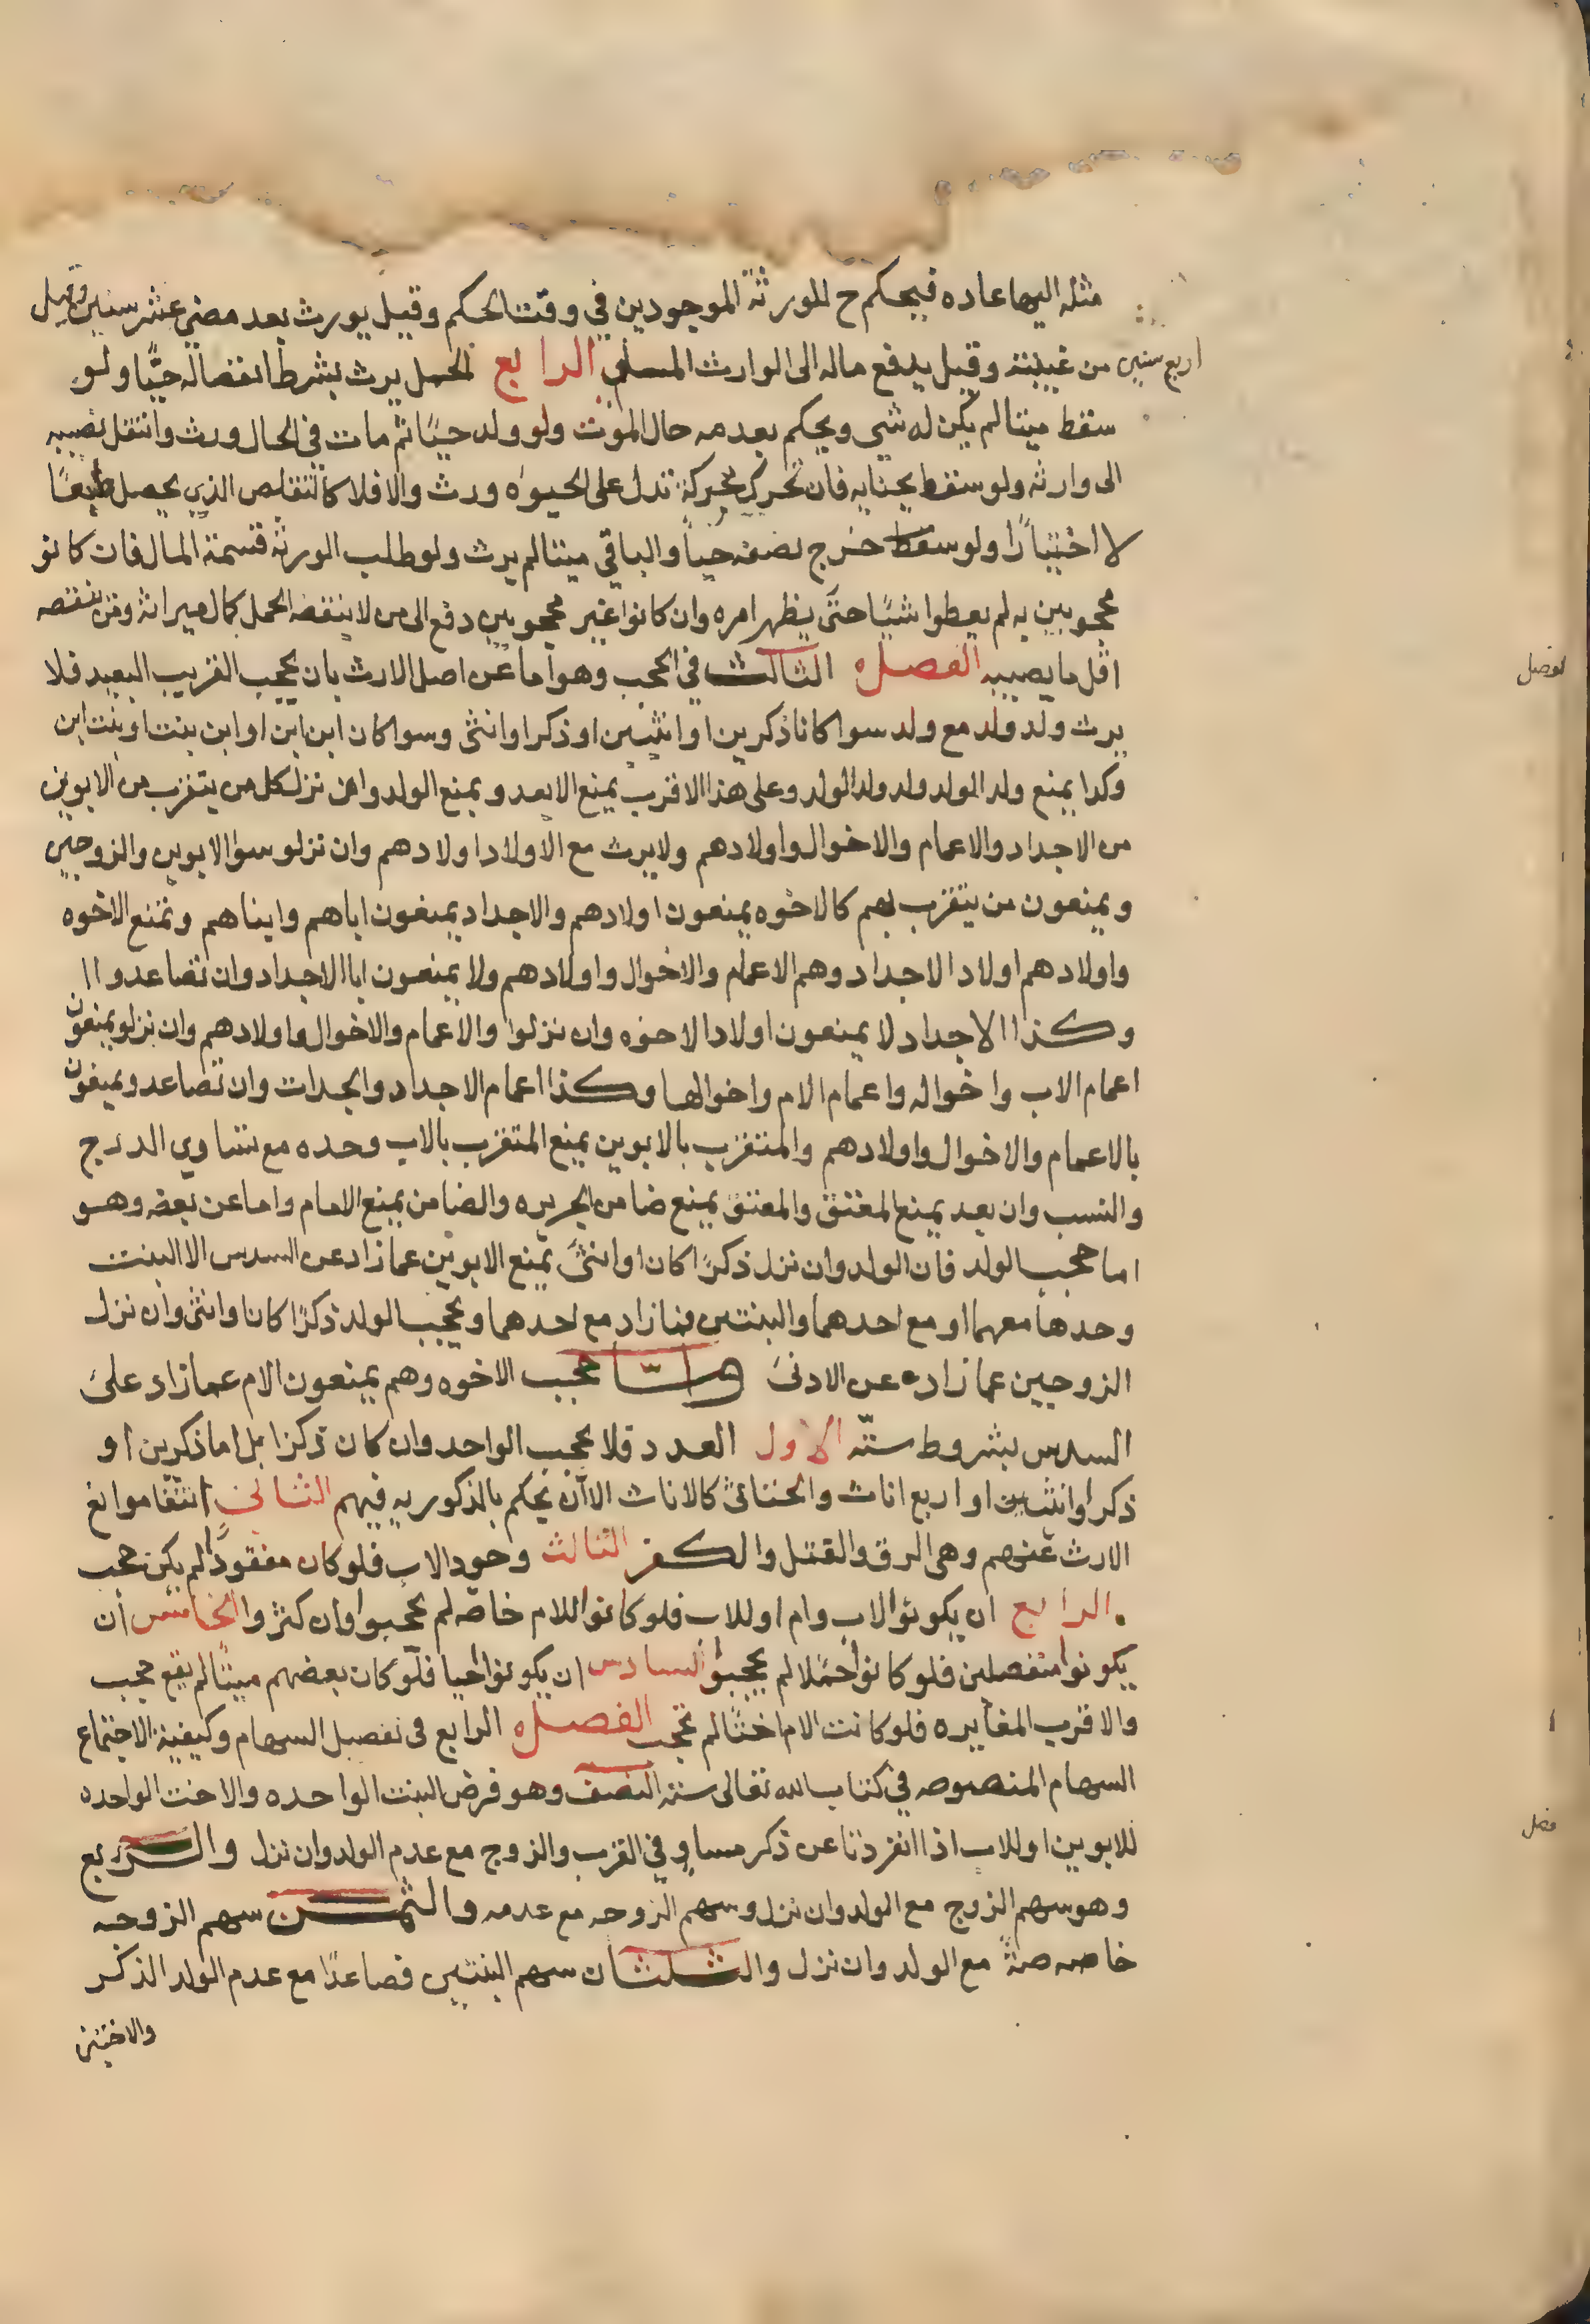 مثله اليها عاده فيحكم ح للورثة الموجودين في وقت الحكم وقيل يورث بعد مضي عشر سنين وقيل
اربع سنين من غيبته وقيل يدفع ماله الى الوارث الملي الرابع الحمل يرث بشرط انفصاله حيًّا ولو
سقط ميتا لم يكن له شي ويحكم بعدمه حال الموت ولو ولد حيًا ثم مات في الحال ورث وانتقل نصيبه
الى وارثه ولو سقط بجنايه فان تحرك بحركة تدل على الحيوه ورث والا فلا كالتقلص الذي يحصل طبعًا
لا اختيارًا ولو سقط خرج نصفه حياً والباقي ميتا لم يرث ولو طلب الورثه قسمة المال فان كانو
محجوبين به لم يعطوا شيًا حتى يظهر امره وان كانوا غير محجوبين دفع الى من لا ينقصه الحمل كمال ميراثه ومن ينقصه
اقل ما يصيبه الفصل الثالث في الحجب وهو اما عن اصل الارث بان يحجب القريب البعيد فلا
يرث ولد ولد مع ولد سوا كانا ذكرين او انثيين او ذكرا وانثى وسوا كان ابن ابن او ابن بنت او بنت ابن
وكدا يمنع ولد الولد ولد ولد الولد وعلى هذا الاقرب يمنع الابعد و يمنع الولد وان نزل كل من يتقرب من الابوين
من الاجداد والاعمام والاخوال واولادهم ولا يرث مع الاولاد اولادهم وان نزلو سوا الابوين والزوجين
ويمنعون من يتقرب بهم كالاخوه يمنعون اولادهم والاجداد يمنعون اباهم وابناهم وتمنع الاخوه
واولادهم اولاد الاجداد وهم الاعمام والاخوال واولادهم ولا يمنعون ابا الاجداد وان تصاعدوا ا
وكذا الاجداد لا يمنعون اولاد الاخوه وان نزلوا والاعمام والاخوال واولادهم وان نزلو يمنعون
اعمام الاب واخواله واعمام الام واخوالها وكذا اعمام الاجداد والجدات وان تصاعدو يمنعون
بالاعمام والاخوال واولادهم والمتقرب بالابوين يمنع المتقرب بالاب وحده مع تساوي الدرج
والنسب وان بعد يمنع المعتق والمعتق يمنع ضامن الجريره والضامن يمنع الامام واما عن بعضه وهو
اما حجب الولد فان الولد وان نزل ذكرًا كان او انثى يمنع الابوين عما زاد عن السدس الا البنت
وحدها معهما او مع احدهما والبنتين فما زاد مع احدهما ويحجب الولد ذكرًا كان او انثى وان نزل
الزوجين عما زاد عن الادنى واما حجب الاخوه وهم يمنعون الام عما زاد على
السدس بشروط ستّه الاول العدد فلا يحجب الواحد وان كان ذكرًا بل اما ذكرين او
ذكرا وانثيين او اربع اناث والخناثى كالاناث الا ان يحكم بالذكوريه فيهم الثاني انتفا موانع
الارث عنهم وهي الرق والقتل والكفر الثالث وجود الاب فلو كان مفقودًا لم يكن حجب
الرابع ان يكونوا لاب وام او للاب فلو كانوا للام خاصّه لم يحجبوا وان كثروا الخامس ان
يكونوا منفصلين فلو كانوا حملا لم يحجبوا السادس ان يكونوا احيا فلو كان بعضهم ميتًا لم يقع حجب
والاقرب المغايره فلو كانت الام اختًا لم تحجب الفصل الرابع في تفصيل السهام وكيفية الاجتماع
السهام المنصوصه في كتاب الله تعالى سته النصف وهو فرض البنت الواحده والاخت الواحده
للابوين او للاب اذا انفردتا عن ذكر مساوٍ في القرب والزوج مع عدم الولد وان نزل والربع
وهو سهم الزوج مع الولد وان نزل وسهم الزوجه مع عدمه والثمن سهم الزوجه
خاصه مع الولد وان نزل والثلثان سهم البنتين فصاعدًا مع عدم الولد الذكر
والاختين
لفصل
فصل